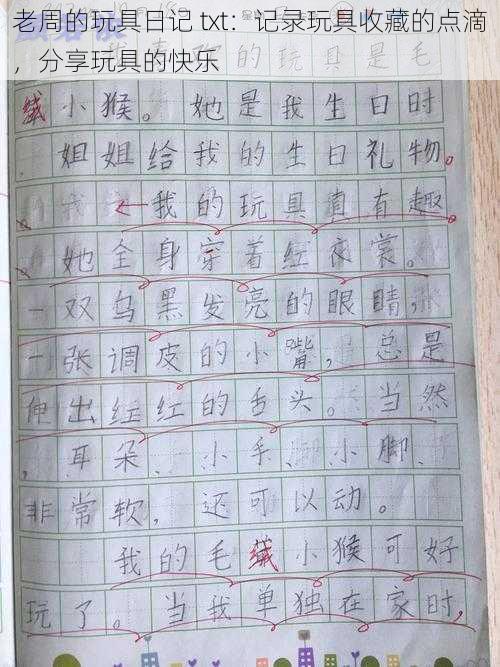 老周的玩具日记 txt：记录玩具收藏的点滴
，分享玩具的快乐
的玩具是毛
绒小猴。她是我生日时
姐姐给我的生日礼物。
我的玩具真有趣
她全身穿着红衣裳。
一双乌黑发亮的眼睛，
一张调皮的小嘴，总是
伸出红红的舌头。当然
，耳朵、小手、小脚、
非常软，还可以动。
我的毛绒小猴可好
玩了。当我单独在家时，